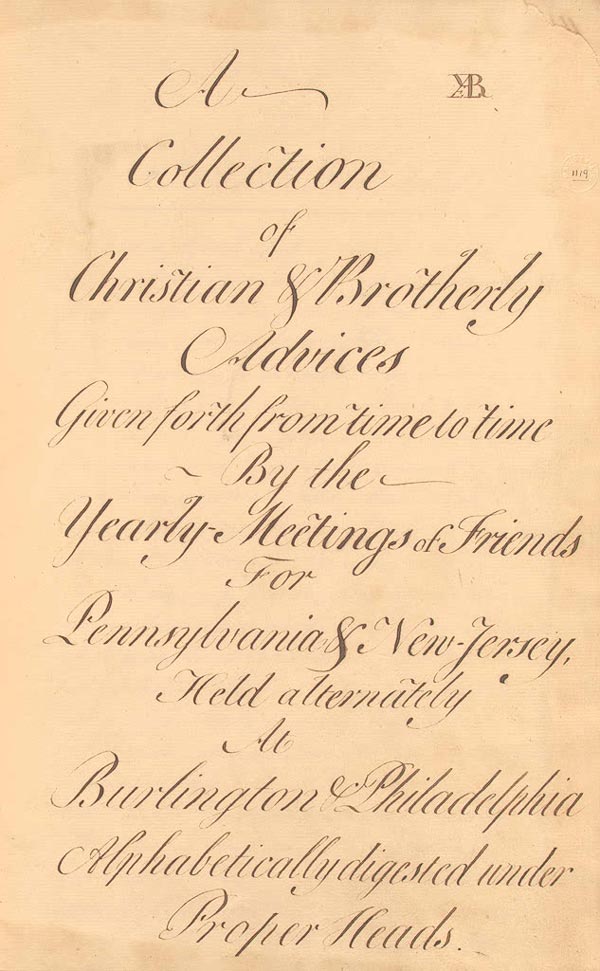 A
Collection
of
Christian & Brotherly
Advices
Given forth from time to time
By the
Yearly-Meetings of Friends
For
Pennsylvania & New-Jersey,
Held alternately
At
Burlington & Philadelphia
Alphabetically digested under
Proper Heads.
1119